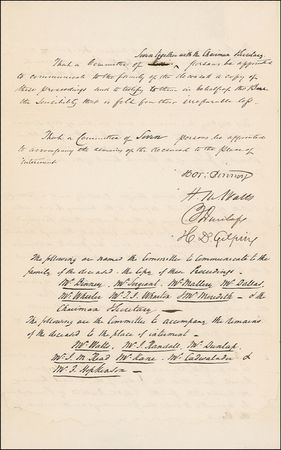 Seven together with the Chairman & Secretary
That a Committee of persons be appointed
to communicate to the family of the deceased a copy of
these proceedings and to testify to them in behalf of the Bar
the sensibility that is felt for their irreparable loss.
That a Committee of Seven persons be appointed
to accompany the remains of the deceased to the place of
interment.
Hor: Binney
H M Watts
T Dunlap
H. D. Gilpin
The following are named the Committee to Communicate to the
family of the deceased the Copy of these Proceedings.
Mr Binney, Mr Sergeant, Mr Mallery, Mr Dallas,
Mr Wheeler Mr T. I. Wharton & Mr Meredith — & the
Chairman & Secretary —
The following are the Committee to accompany the remains
of the deceased to the place of interment —
Mr Watts, Mr J. Randall, Mr Dunlap,
Mr J. M. Read Mr Kane, Mr Cadwalader &
Mr F. Hopkinson —